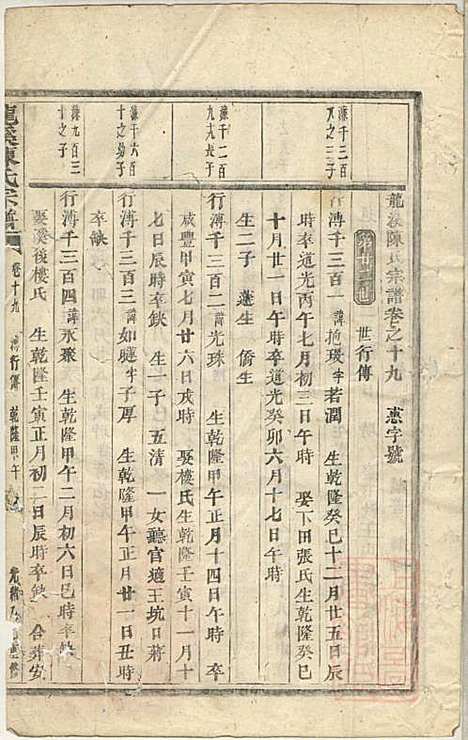 龍溪陳氏宗譜卷之十九 惠字號
世行傳
濂千三百
之三子
行溥千三百一 諱抱璞 字若潤 生乾隆癸巳十二月廿五日辰
時卒道光丙午七月初三日午時 娶下田張氏生乾隆癸巳
十月廿一日午時卒道光癸卯六月十七日午時
生二子 遜生 僑生
濂千二百
九十長子
行溥千三百二 諱光珠 生乾隆甲午正月十四日午時 卒
咸豐甲寅七月廿六日戌時 娶樓氏生乾隆壬寅十一月十
七日辰時卒缺 生一子 五清 一女聽官適王坑口蔣
濂千六百
十之幼子
行溥千三百三 諱如聽 字子厚 生乾隆甲午正月廿一日丑時
卒缺
濂九百三
十之子
行溥千三百四 諱永聚 生乾隆甲午二月初六日巳時卒缺
娶溪後樓氏 生乾隆壬寅正月初一日辰時卒缺 合葬安
龍溪陳氏宗譜 卷十九 溥行傳 乾隆甲午 光緒